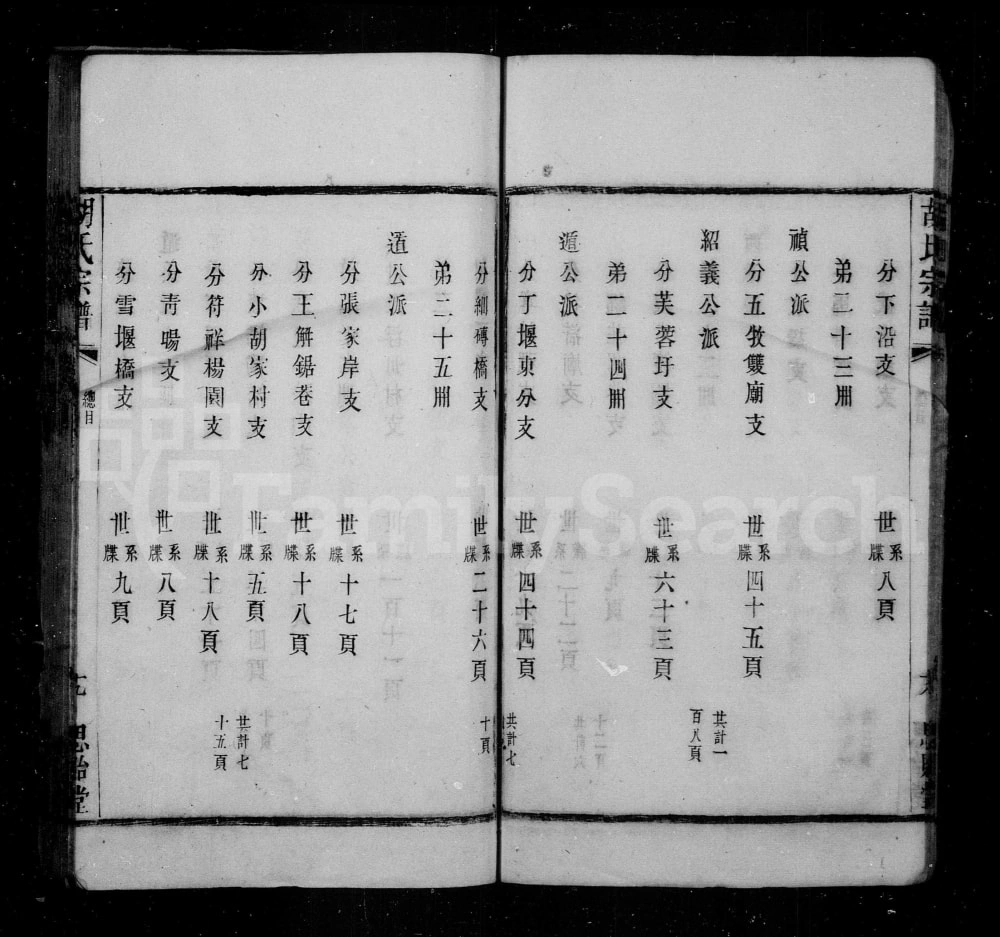 胡氏宗譜
分下沿支 世系牒八頁
弟二十三冊
禎公派
分五牧雙廟支 世系牒四十五頁
共計一百八頁
紹義公派
分芙蓉圩支 世系牒六十三頁
弟二十四冊
遁公派
分丁堰東分支 世系牒四十四頁
共計七十頁
分細磚橋支 世系牒二十六頁
弟二十五冊
道公派
分張家岸支 世系牒十七頁
分王解鋸巷支 世系牒十八頁
分小胡家村支 世系牒五頁
共計七十五頁
分符祥楊園支 世系牒十八頁
分青暘支 世系牒八頁
分雪堰橋支 世系牒九頁
胡氏宗譜
總目
思貽堂
FamilySearch